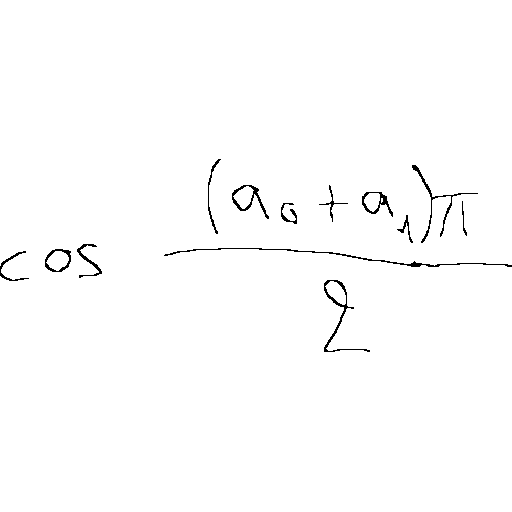 \cos \frac{(a_0 + a_1)\pi}{2}